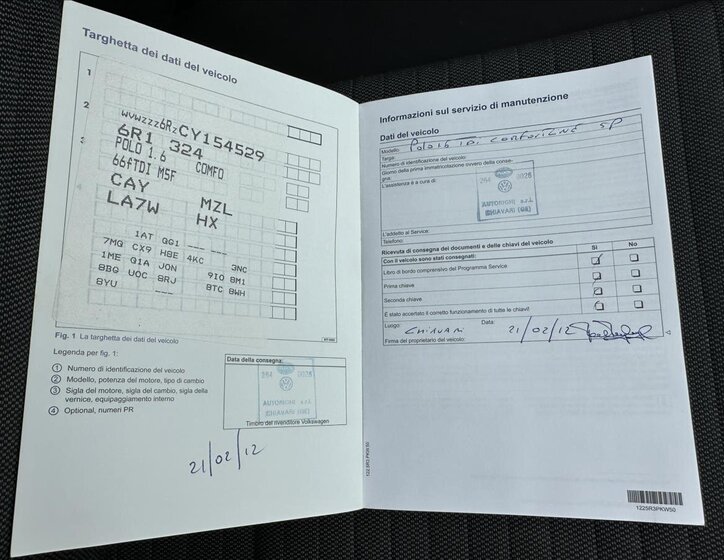 Targhetta dei dati del veicolo
1
2
3
WVWZZZ6RZCY154529
6R1 324
POLO 1.6 COMFO
66fTDI M5F
CAY MZL
LA7W HX
1AT GG1 --- ---
7MG CX9 H8E 4KC 3NC
1ME G1A J0N 9IG 8M1
8BG U0C 8RJ 8TC 8WH
8YU ---
Fig. 1 La targhetta dei dati del veicolo
Legenda per fig. 1:
① Numero di identificazione del veicolo
② Modello, potenza del motore, tipo di cambio
③ Sigla del motore, sigla del cambio, sigla della
vernice, equipaggiamento interno
④ Optional, numeri PR
Data della consegna:
264 0026
AUTORIGHI s.r.l.
CHIAVARI (GE)
Timbro del rivenditore Volkswagen
21/02/12
Informazioni sul servizio di manutenzione
Dati del veicolo
Modello: Polo 1.6 TDI COMFORTLINE 5P
Targa:
Numero di identificazione del veicolo:
Giorno della prima immatricolazione ovvero della conse-
gna:
L'assistenza è a cura di:
264 0026
AUTORIGHI s.r.l.
CHIAVARI (GE)
L'addetto al Service:
Telefono:
Ricevuta di consegna dei documenti e delle chiavi del veicolo
Con il veicolo sono stati consegnati: Sì No
Libro di bordo comprensivo del Programma Service
Prima chiave
Seconda chiave
È stato accertato il corretto funzionamento di tutte le chiavi!
Luogo: CHIAVARI Data: 21/02/12
Firma del proprietario del veicolo:
122.5R3.PKW.50
1225R3PKW50